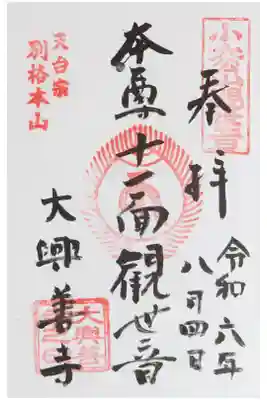 奉拝
令和六年
八月四日
本尊十一面観世音
大興善寺
天台宗
別格本山
大興善寺